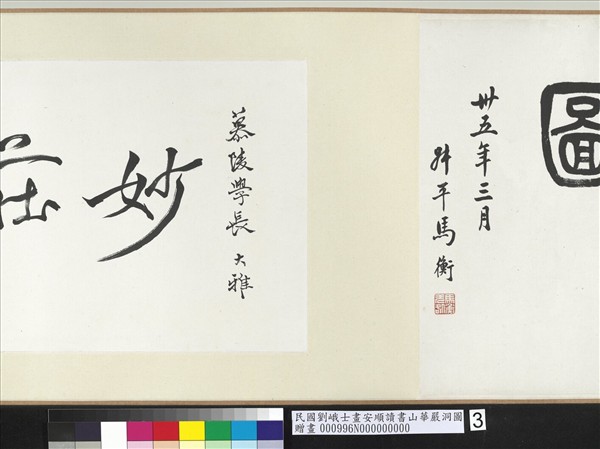 圖
卅五年三月
叔平馬衡
慕陵學長 大雅
妙莊
民國劉峨士畫安順讀書山華嚴洞圖
贈畫 000996N000000000
3